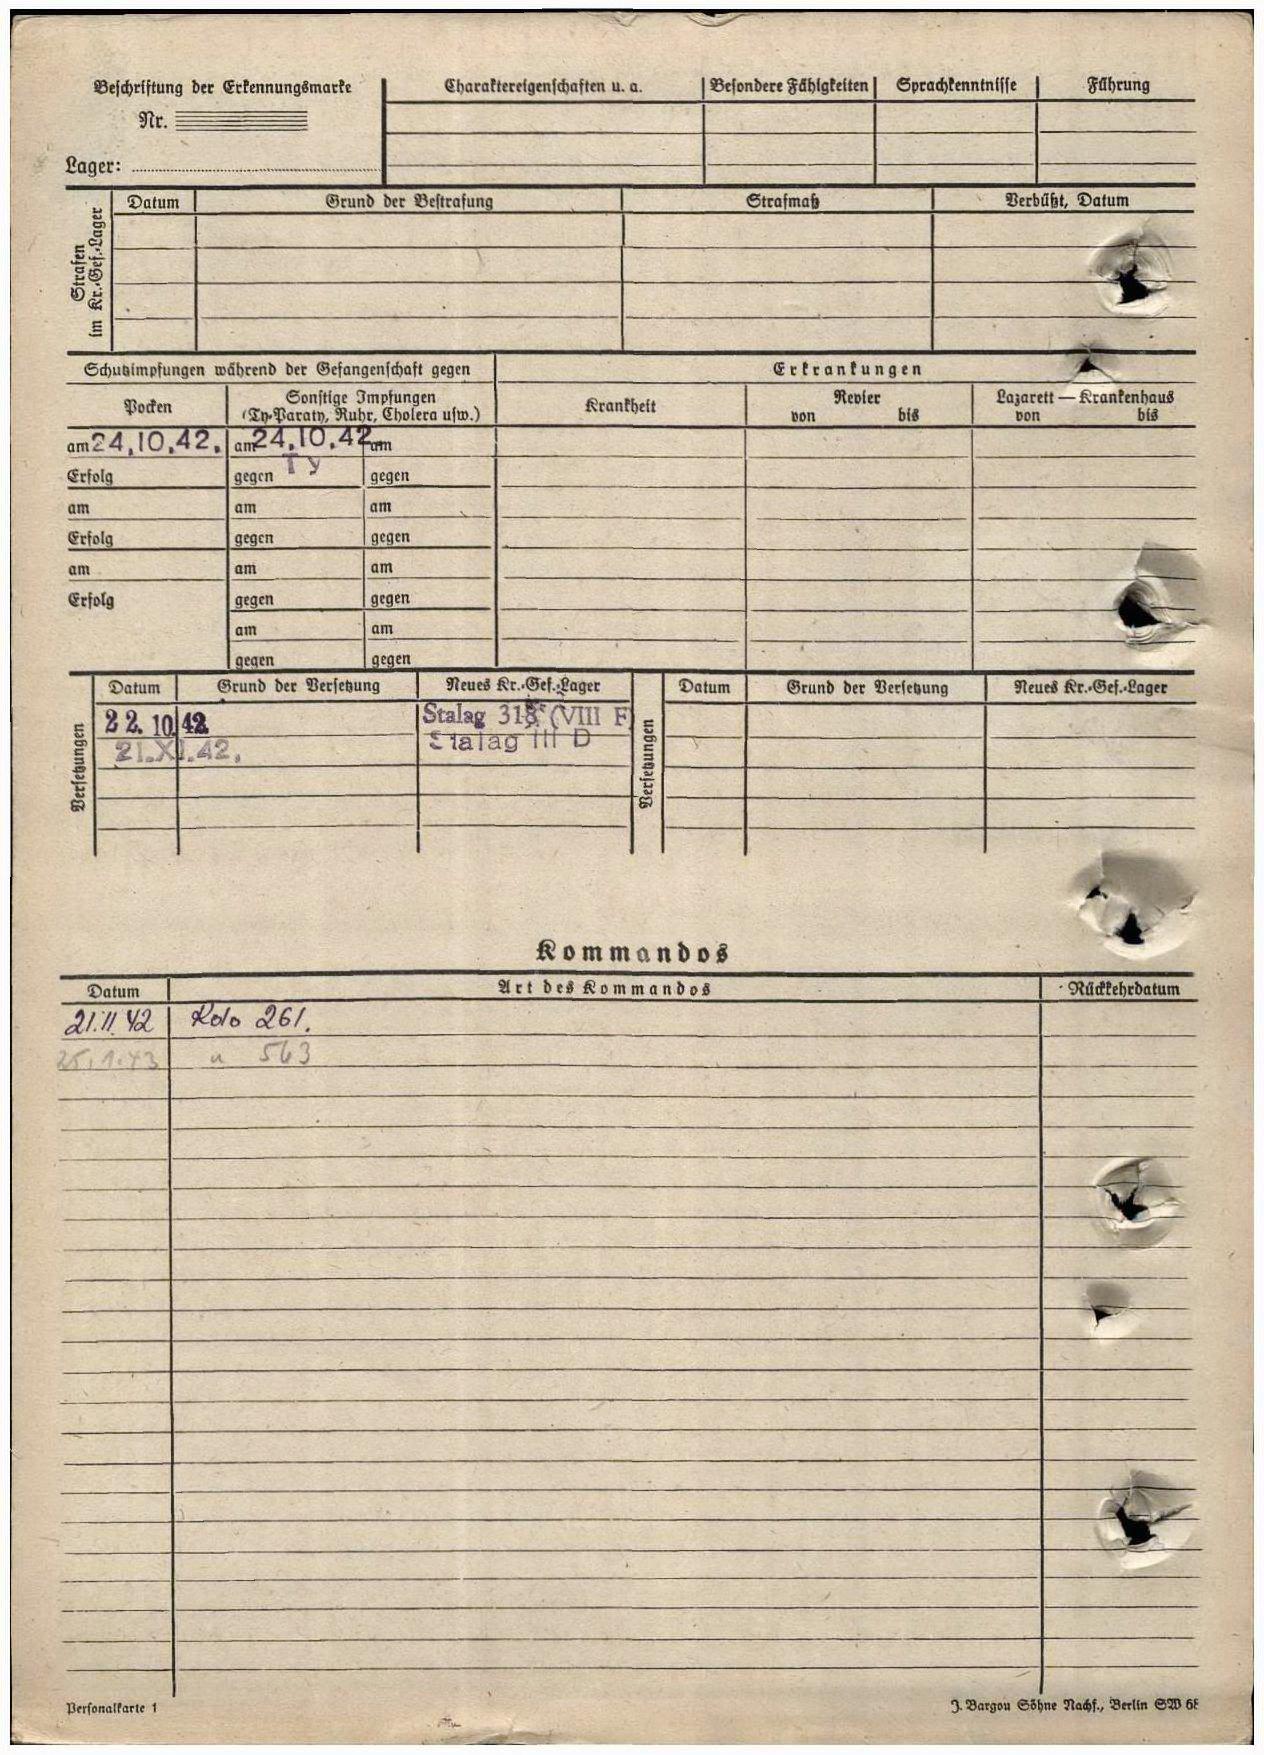 Beschriftung der Erkennungsmarke
Nr.
Lager:
Charaktereigenschaften u. a.
Besondere Fähigkeiten
Sprachkenntnisse
Führung
Strafen im Kr.-Gef.-Lager
Datum
Grund der Bestrafung
Strafmaß
Verbüßt, Datum
Schutzimpfungen während der Gefangenschaft gegen
Erkrankungen
Pocken
Sonstige Impfungen
(Ty-Paraty, Ruhr, Cholera usw.)
Krankheit
Revier
von bis
Lazarett — Krankenhaus
von bis
am 24.10.42. am 24.10.42 am
Erfolg gegen Ty gegen
am am am
Erfolg gegen gegen
am am am
Erfolg gegen gegen
am am
gegen gegen
Versetzungen
Datum Grund der Versetzung Neues Kr.-Gef.-Lager
22. 10. 42. Stalag 318 (VIII F)
21.XI.42. Stalag III D
Versetzungen
Datum Grund der Versetzung Neues Kr.-Gef.-Lager
Kommandos
Datum Art des Kommandos Rückkehrdatum
21.11.42 Kdo 261.
25.1.43 " 563
Personalkarte 1
J. Bargou Söhne Nachf., Berlin SW 68